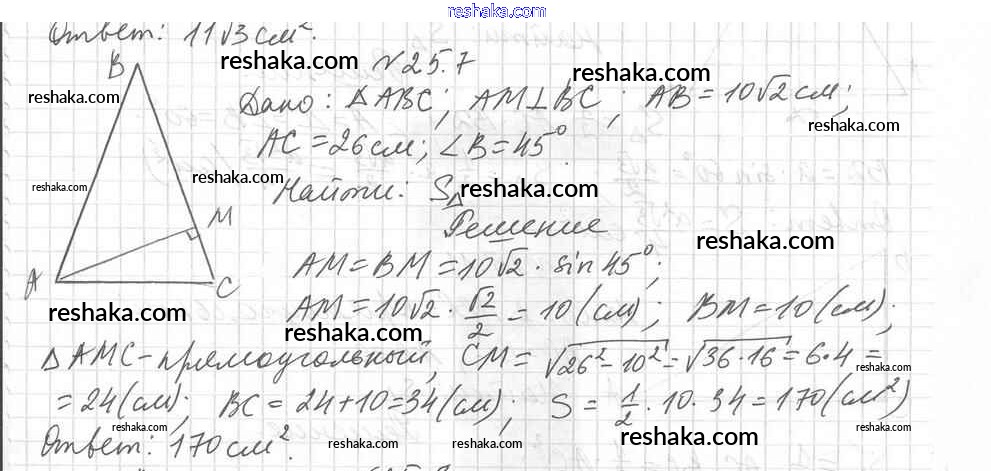 reshaka.com
Ответ: 11√3 см².
№25.7
reshaka.com
reshaka.com
B
reshaka.com
Дано: △ABC; AM⊥BC; AB=10√2 см;
reshaka.com
AC=26см; ∠B=45°.
reshaka.com
reshaka.com
Найти: S△
reshaka.com
M
Решение
reshaka.com
A
C
AM=BM=10√2·sin45°;
reshaka.com
AM=10√2·√2/2=10(см); BM=10(см);
reshaka.com
△AMC-прямоугольный, CM=√26²-10²=√36·16=6·4=
reshaka.com
=24(см); BC=24+10=34(см); S=1/2·10·34=170(см²)
reshaka.com
reshaka.com
reshaka.com
reshaka.com
reshaka.com
Ответ: 170см².
reshaka.com